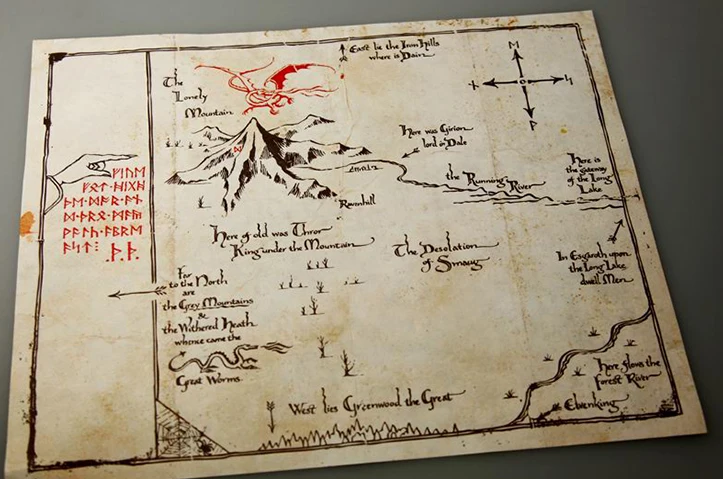 East lie the Iron Hills
where is Dain
The
Lonely
Mountain
Here was Girion
lord in Dale
the Running River
Here is
the gateway
of the Long
Lake
Ravenhill
Here of old was Thror
King under the Mountain
The Desolation
of Smaug
In Esgaroth upon
the Long Lake
dwell Men
Far
to the North
are
the Grey Mountains
&
the Withered Heath
whence came the
Great Worms
Here flows the
Forest River
West lies Greenwood the Great
Elvenking